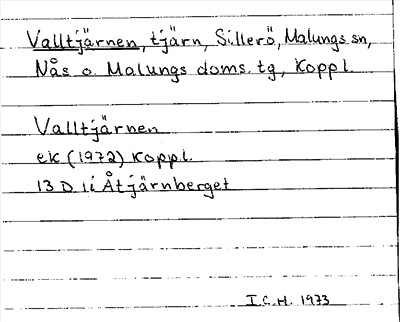 Valltjärnen, tjärn, Sillerö, Malungs sn,
Nås o. Malungs doms. tg, Koppl.
Valltjärnen
ek (1972) Koppl.
13 D 1i Åtjärnberget
I.C.H. 1973